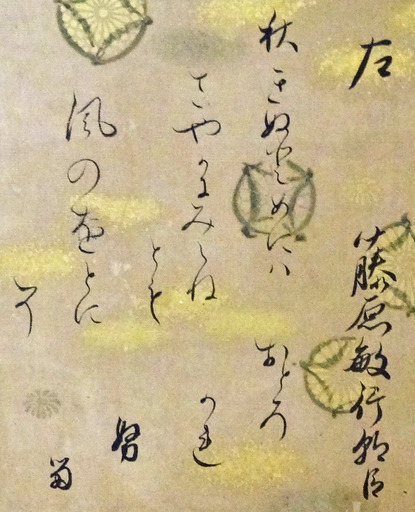 左
藤原敏行朝臣
秋きぬとめには
さやかにみえね
とも
風のをとに
そ
おとろ
かれ
努
留